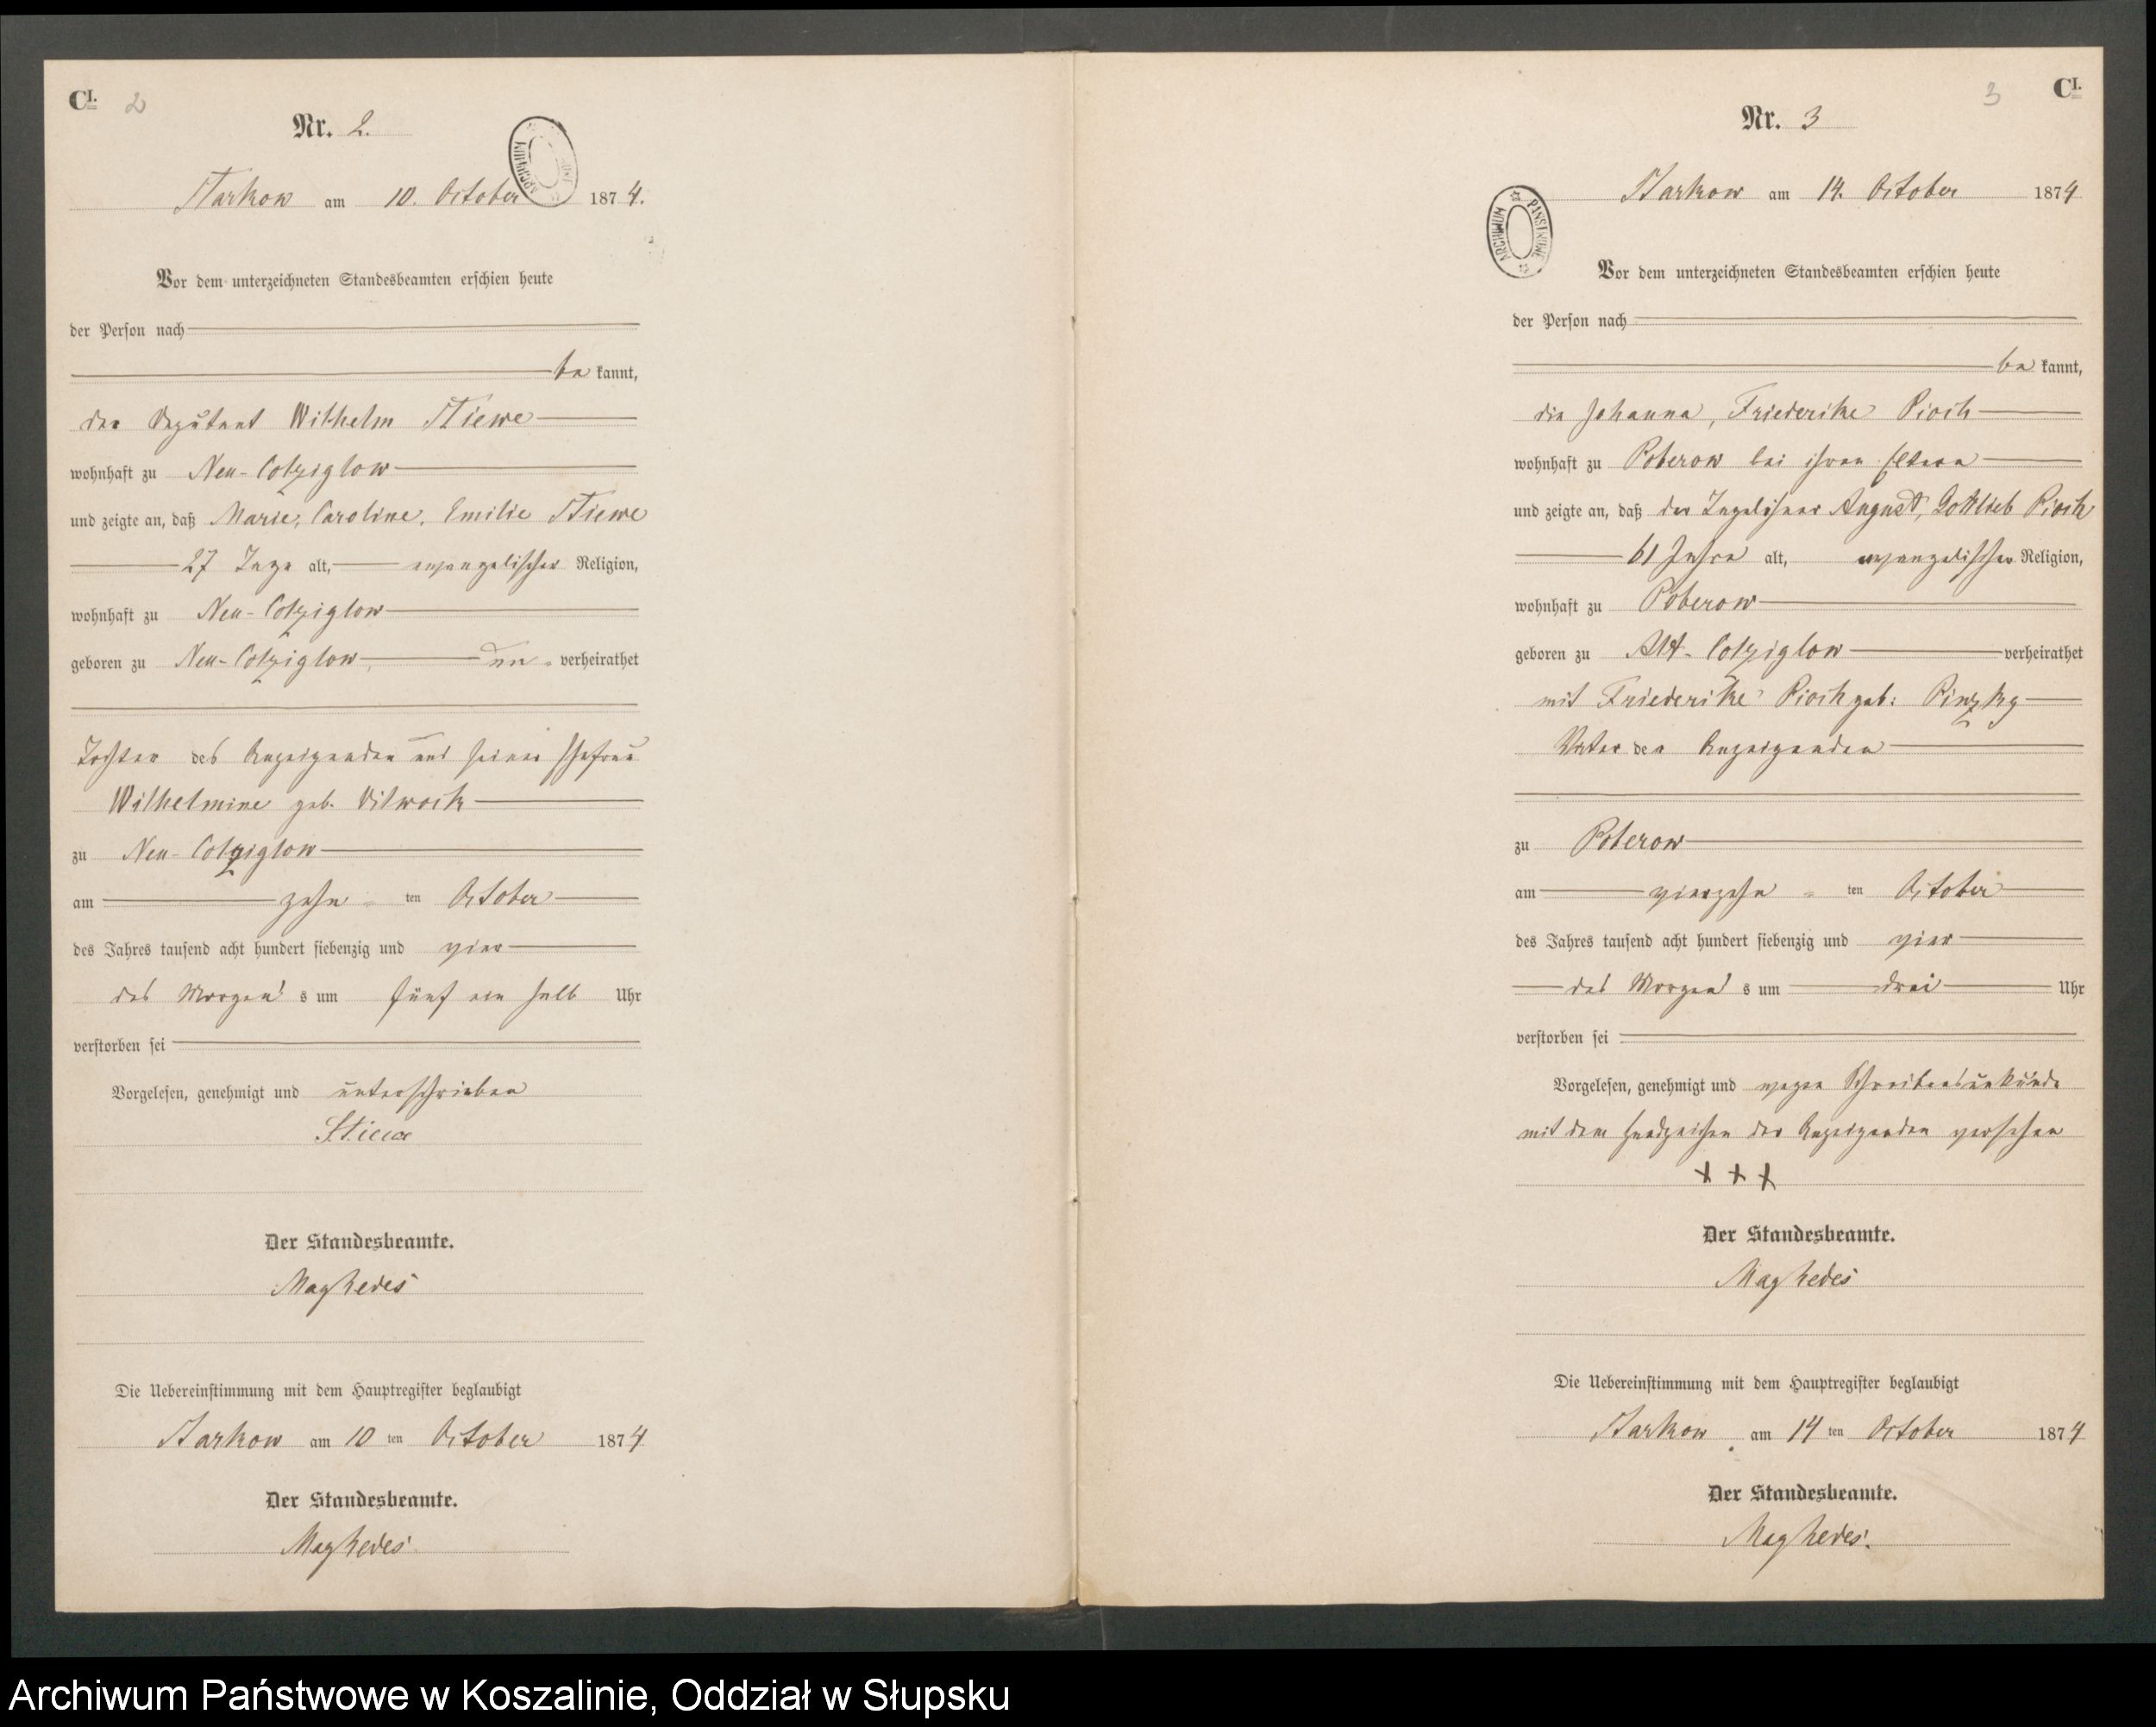 C I. 2
Nr. 2.
Starkow am 10. October 1874.
Vor dem unterzeichneten Standesbeamten erschien heute
der Person nach
be kannt,
der Deputant Wilhelm Stiewe
wohnhaft zu Neu-Colziglow
und zeigte an, daß Marie, Caroline, Emilie Stiewe
27 Tage alt, evangelischer Religion,
wohnhaft zu Neu-Colziglow
geboren zu Neu-Colziglow, un- verheirathet
Tochter des Anzeigenden und seiner Ehefrau
Wilhelmine geb.
zu Neu-Colziglow
am zehn ten October
des Jahres tausend acht hundert siebenzig und vier
des Morgen s um fünf ein halb Uhr
verstorben sei
Vorgelesen, genehmigt und unterschrieben
Stiewe
Der Standesbeamte.
Die Uebereinstimmung mit dem Hauptregister beglaubigt
Starkow am 10 ten October 1874
Der Standesbeamte.
3 C I.
Nr. 3
Starkow am 14. October 1874
ARCHIWUM PAŃSTWOWE
Vor dem unterzeichneten Standesbeamten erschien heute
der Person nach
be kannt,
die Johanna, Friederike Pioch
wohnhaft zu Poberow bei ihren Eltern
und zeigte an, daß der Tagelöhner August, Gottlieb Pioch
61 Jahre alt, evangelischer Religion,
wohnhaft zu Poberow
geboren zu Alt-Colziglow verheirathet
mit Friederike Pioch geb:
Vater der Anzeigenden
zu Poberow
am vierzehn ten October
des Jahres tausend acht hundert siebenzig und vier
des Morgen s um drei Uhr
verstorben sei
Vorgelesen, genehmigt und wegen Schreibensunkunde
mit dem Handzeichen der Anzeigenden versehen
+ + +
Der Standesbeamte.
Die Uebereinstimmung mit dem Hauptregister beglaubigt
Starkow am 14 ten October 1874
Der Standesbeamte.
Archiwum Państwowe w Koszalinie, Oddział w Słupsku